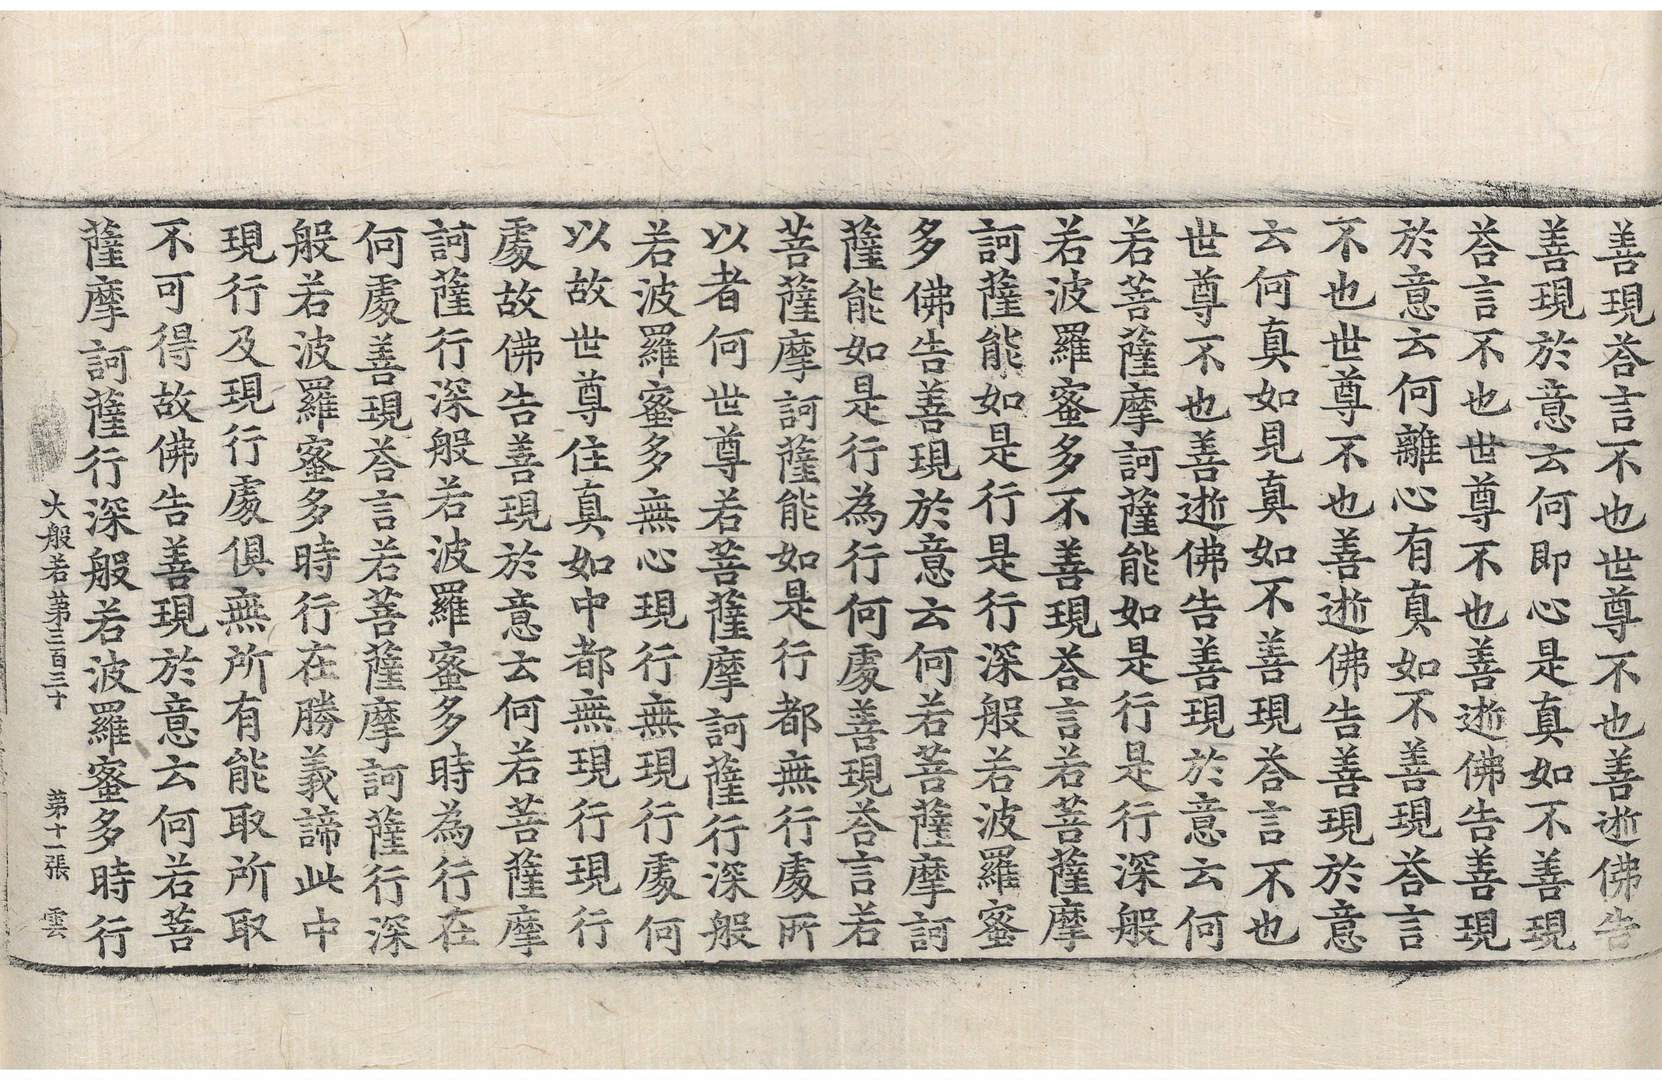 善現荅言不也世尊不也善逝佛告
善現於意云何即心是真如不善現
荅言不也世尊不也善逝佛告善現
於意云何離心有真如不善現荅言
不也世尊不也善逝佛告善現於意
云何真如見真如不善現荅言不也
世尊不也善逝佛告善現於意云何
若菩薩摩訶薩能如是行是行深般
若波羅蜜多不善現荅言若菩薩摩
訶薩能如是行是行深般若波羅蜜
多佛告善現於意云何若菩薩摩訶
薩能如是行為行何處善現荅言若
菩薩摩訶薩能如是行都無行處所
以者何世尊若菩薩摩訶薩行深般
若波羅蜜多無心現行無現行處何
以故世尊住真如中都無現行現行
處故佛告善現於意云何若菩薩摩
訶薩行深般若波羅蜜多時為行在
何處善現荅言若菩薩摩訶薩行深
般若波羅蜜多時行在勝義諦此中
現行及現行處俱無所有能取所取
不可得故佛告善現於意云何若菩
薩摩訶薩行深般若波羅蜜多時行
大般若第三百三十 第十一張 雲